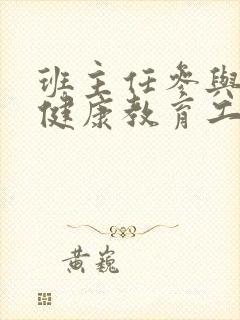 班主任参與
健康教育工
黄巍